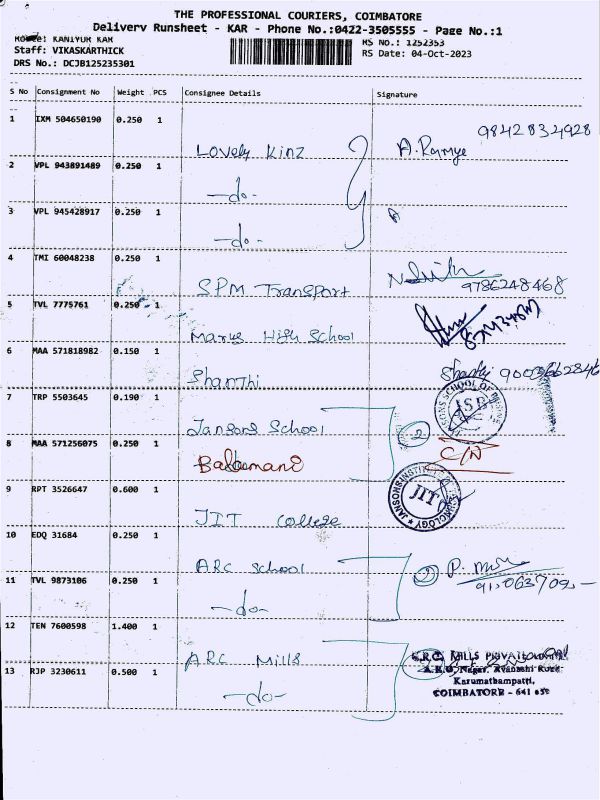 THE PROFESSIONAL COURIERS, COIMBATORE
Delivery Runsheet - KAR - Phone No.:0422-3505555 - Page No.:1
Route: KANIYUR KAR
RS No.: 1252353
Staff: VIKASKARTHICK
RS Date: 04-Oct-2023
DRS No.: DCJB125235301
S No Consignment No Weight PCS Consignee Details Signature
1 IXM 504650190 0.250 1
Lovely Kinz A. Ramya 9842832928
2 VPL 943891489 0.250 1
-do-
3 VPL 945428917 0.250 1
-do-
4 TMI 60048238 0.250 1
SPM Transport 9786248468
5 TVL 7775761 0.250 1
Marys High School
6 MAA 571818982 0.150 1
Shanthi Shanthi
7 TRP 5503645 0.190 1
Jansons School 2 JSB
8 MAA 571256075 0.250 1
Balamani C/N
9 RPT 3526647 0.600 1
JIT College JIT
10 EDQ 31684 0.250 1
ARC School 2
11 TVL 9873106 0.250 1
-do-
12 TEN 7600598 1.400 1
ARC Mills
13 RJP 3230611 0.500 1
-do-
Karumathampatti,
COIMBATORE - 641